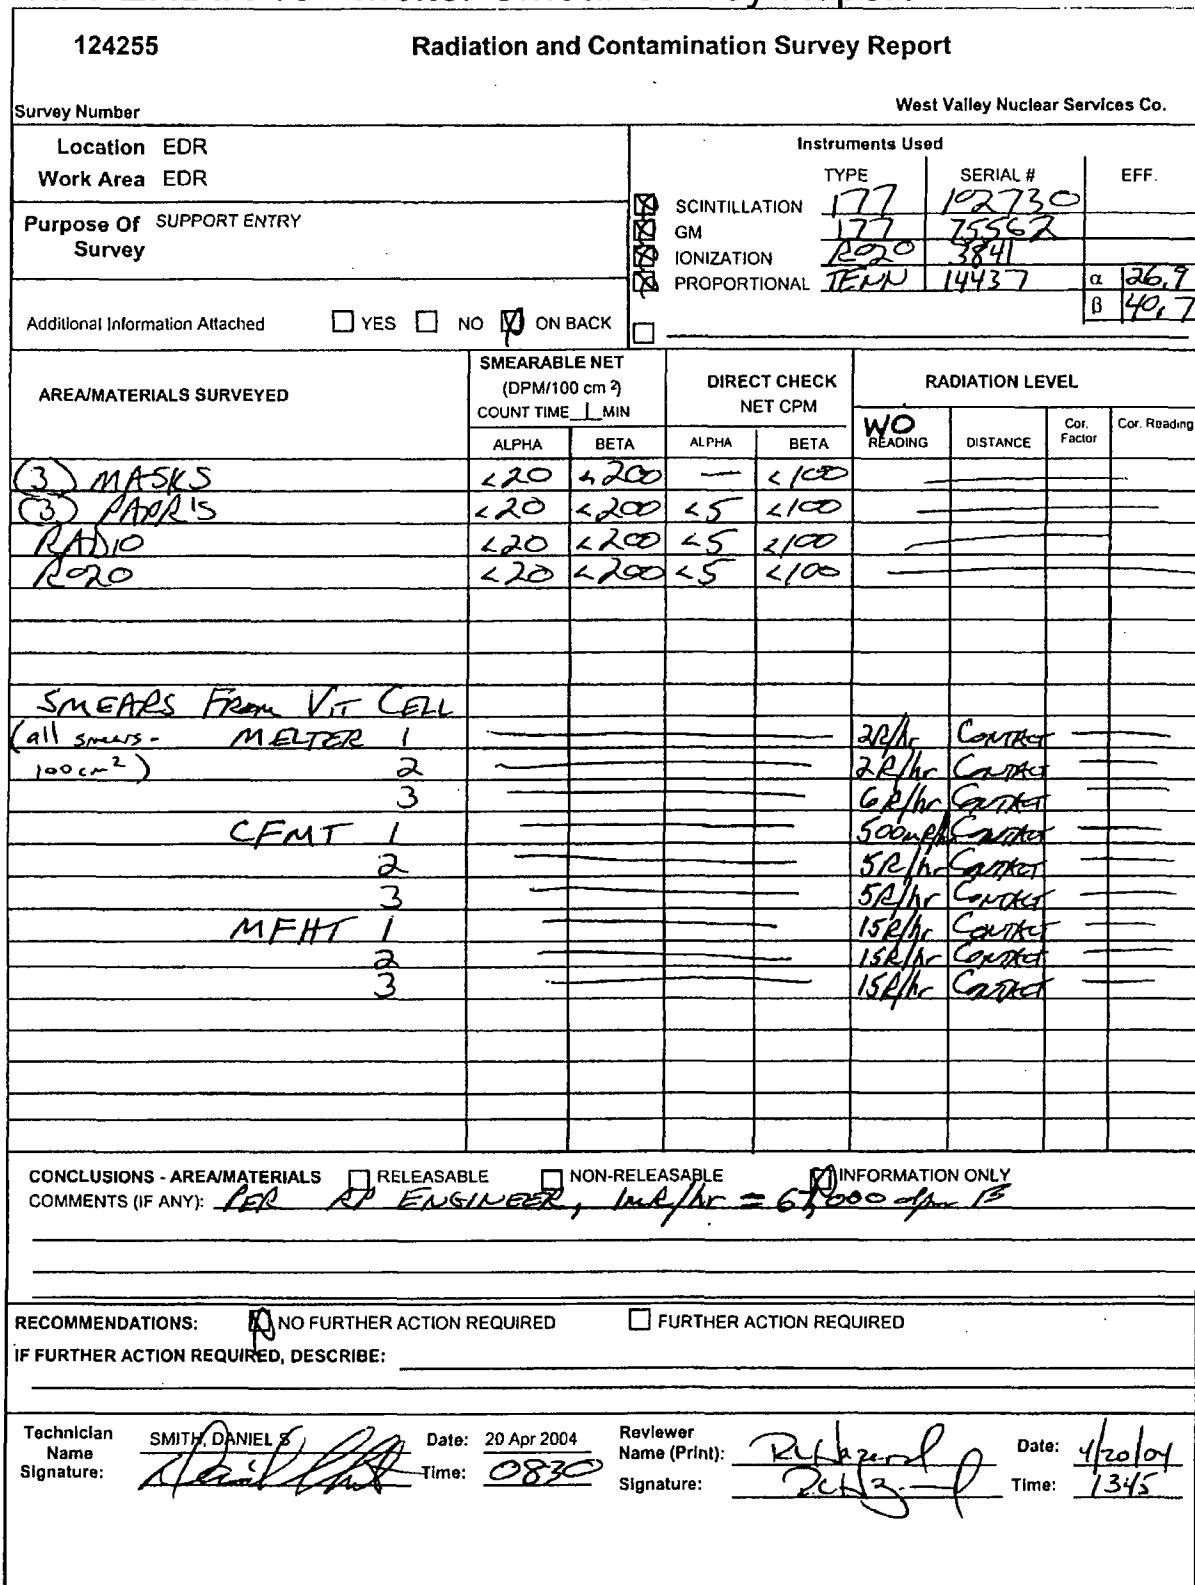 124255 Radiation and Contamination Survey Report
Survey Number West Valley Nuclear Services Co.
Location EDR
Work Area EDR
Purpose Of Survey SUPPORT ENTRY
Additional Information Attached YES NO ON BACK
Instruments Used
TYPE SERIAL # EFF.
SCINTILLATION 177 102730
GM 177 75562
IONIZATION RO20 3841
PROPORTIONAL TENN 14437 α 26.9
β 40.7
AREA/MATERIALS SURVEYED
SMEARABLE NET
(DPM/100 cm ²)
COUNT TIME 1 MIN
ALPHA BETA
DIRECT CHECK
NET CPM
ALPHA BETA
RADIATION LEVEL
WO
READING DISTANCE Cor. Factor Cor. Reading
(3) MASKS <20 <200 — <100
(3) PAPR'S <20 <200 <5 <100
RADIO <20 <200 <5 <100
RO20 <20 <200 <5 <100
SMEARS FROM VIT CELL
(all smears - MELTER 1 2R/hr CONTACT
100 cm²) 2 2R/hr CONTACT
3 6R/hr CONTACT
CFMT 1 500mR/h CONTACT
2 5R/hr CONTACT
3 5R/hr CONTACT
MFHT 1 15R/hr CONTACT
2 15R/hr CONTACT
3 15R/hr CONTACT
CONCLUSIONS - AREA/MATERIALS RELEASABLE NON-RELEASABLE INFORMATION ONLY
COMMENTS (IF ANY): PER RP ENGINEER, 1mR/hr = dpm β
RECOMMENDATIONS: NO FURTHER ACTION REQUIRED FURTHER ACTION REQUIRED
IF FURTHER ACTION REQUIRED, DESCRIBE:
Technician Name SMITH, DANIEL S Date: 20 Apr 2004
Signature: Time: 0830
Reviewer Name (Print): Date: 4/20/04
Signature: Time: 1345